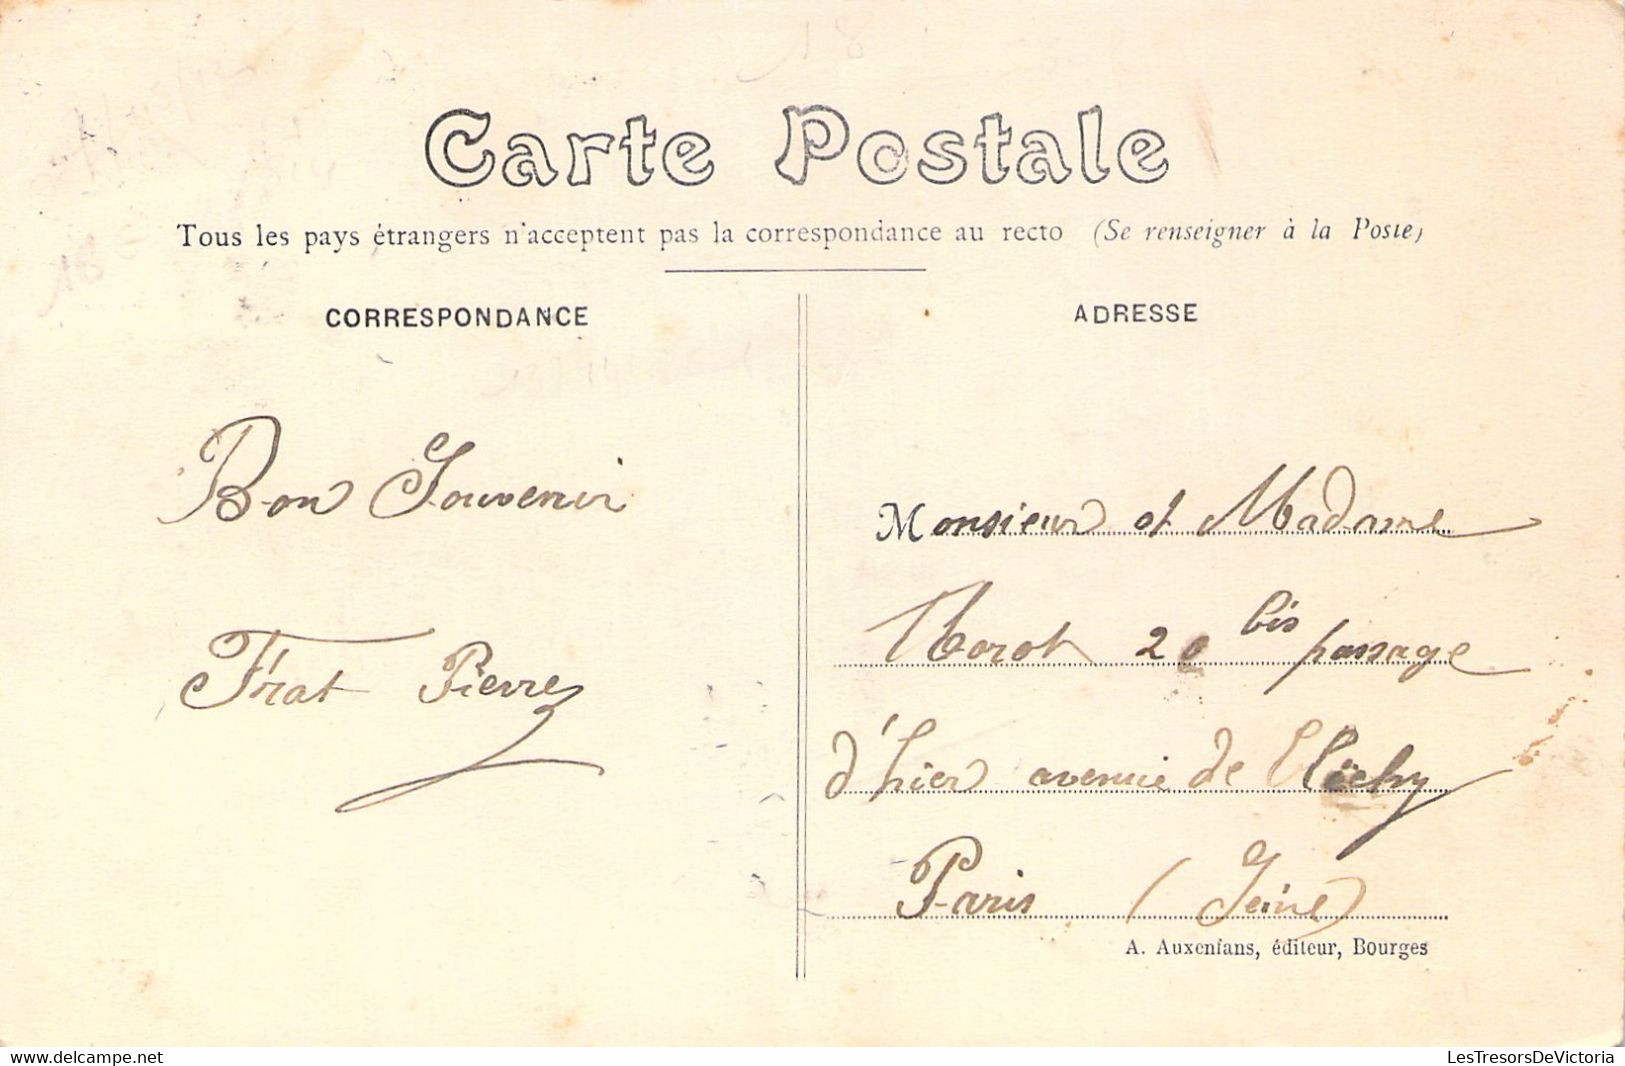 Carte Postale
Tous les pays étrangers n'acceptent pas la correspondance au recto (Se renseigner à la Poste)
CORRESPONDANCE
Bon Souvenir
Frat Pierre
ADRESSE
Monsieur et Madame
20 bis passage
d'hier avenue de Clichy
Paris (Seine)
A. Auxenfans, éditeur, Bourges
www.delcampe.net
LesTresorsDeVictoria